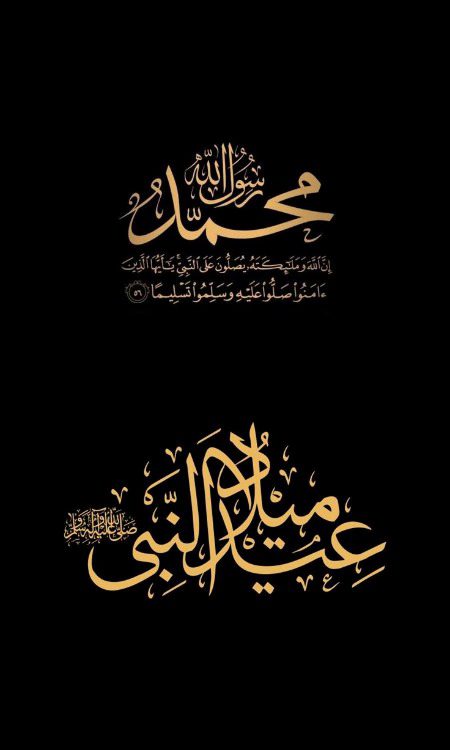 محمد رسول الله
إِنَّ ٱللَّهَ وَمَلَٰٓئِكَتَهُۥ يُصَلُّونَ عَلَى ٱلنَّبِيِّۚ يَٰٓأَيُّهَا ٱلَّذِينَ
ءَامَنُوا۟ صَلُّوا۟ عَلَيْهِ وَسَلِّمُوا۟ تَسْلِيمًا ٥٦
عيد ميلاد النبي
صلى الله عليه وآله وسلم